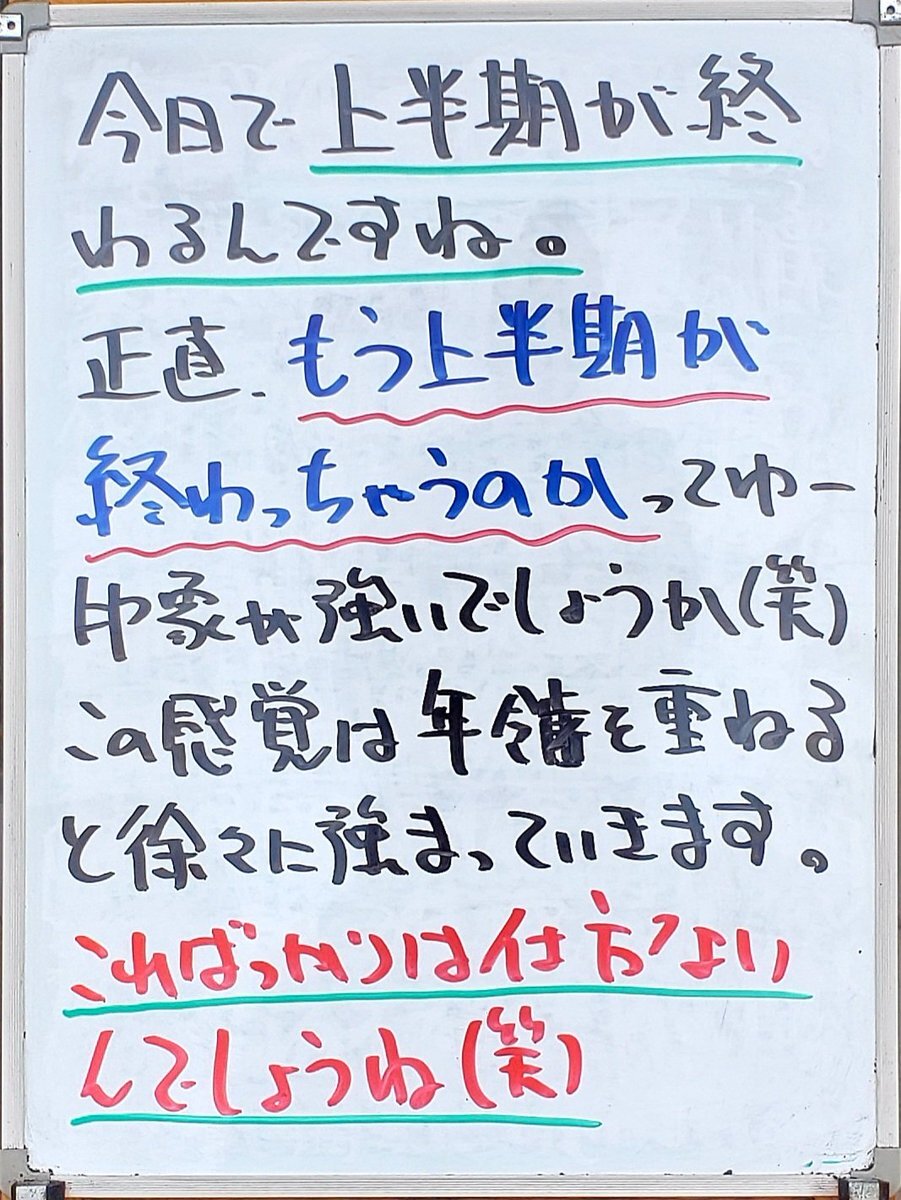 今日で上半期が終
わるんですね。
正直、もう上半期が
終わっちゃうのかってゆー
印象が強いでしょうか(笑)
この感覚は年齢を重ねる
と徐々に強まっていきます。
こればっかりは仕方ない
んでしょうね(笑)